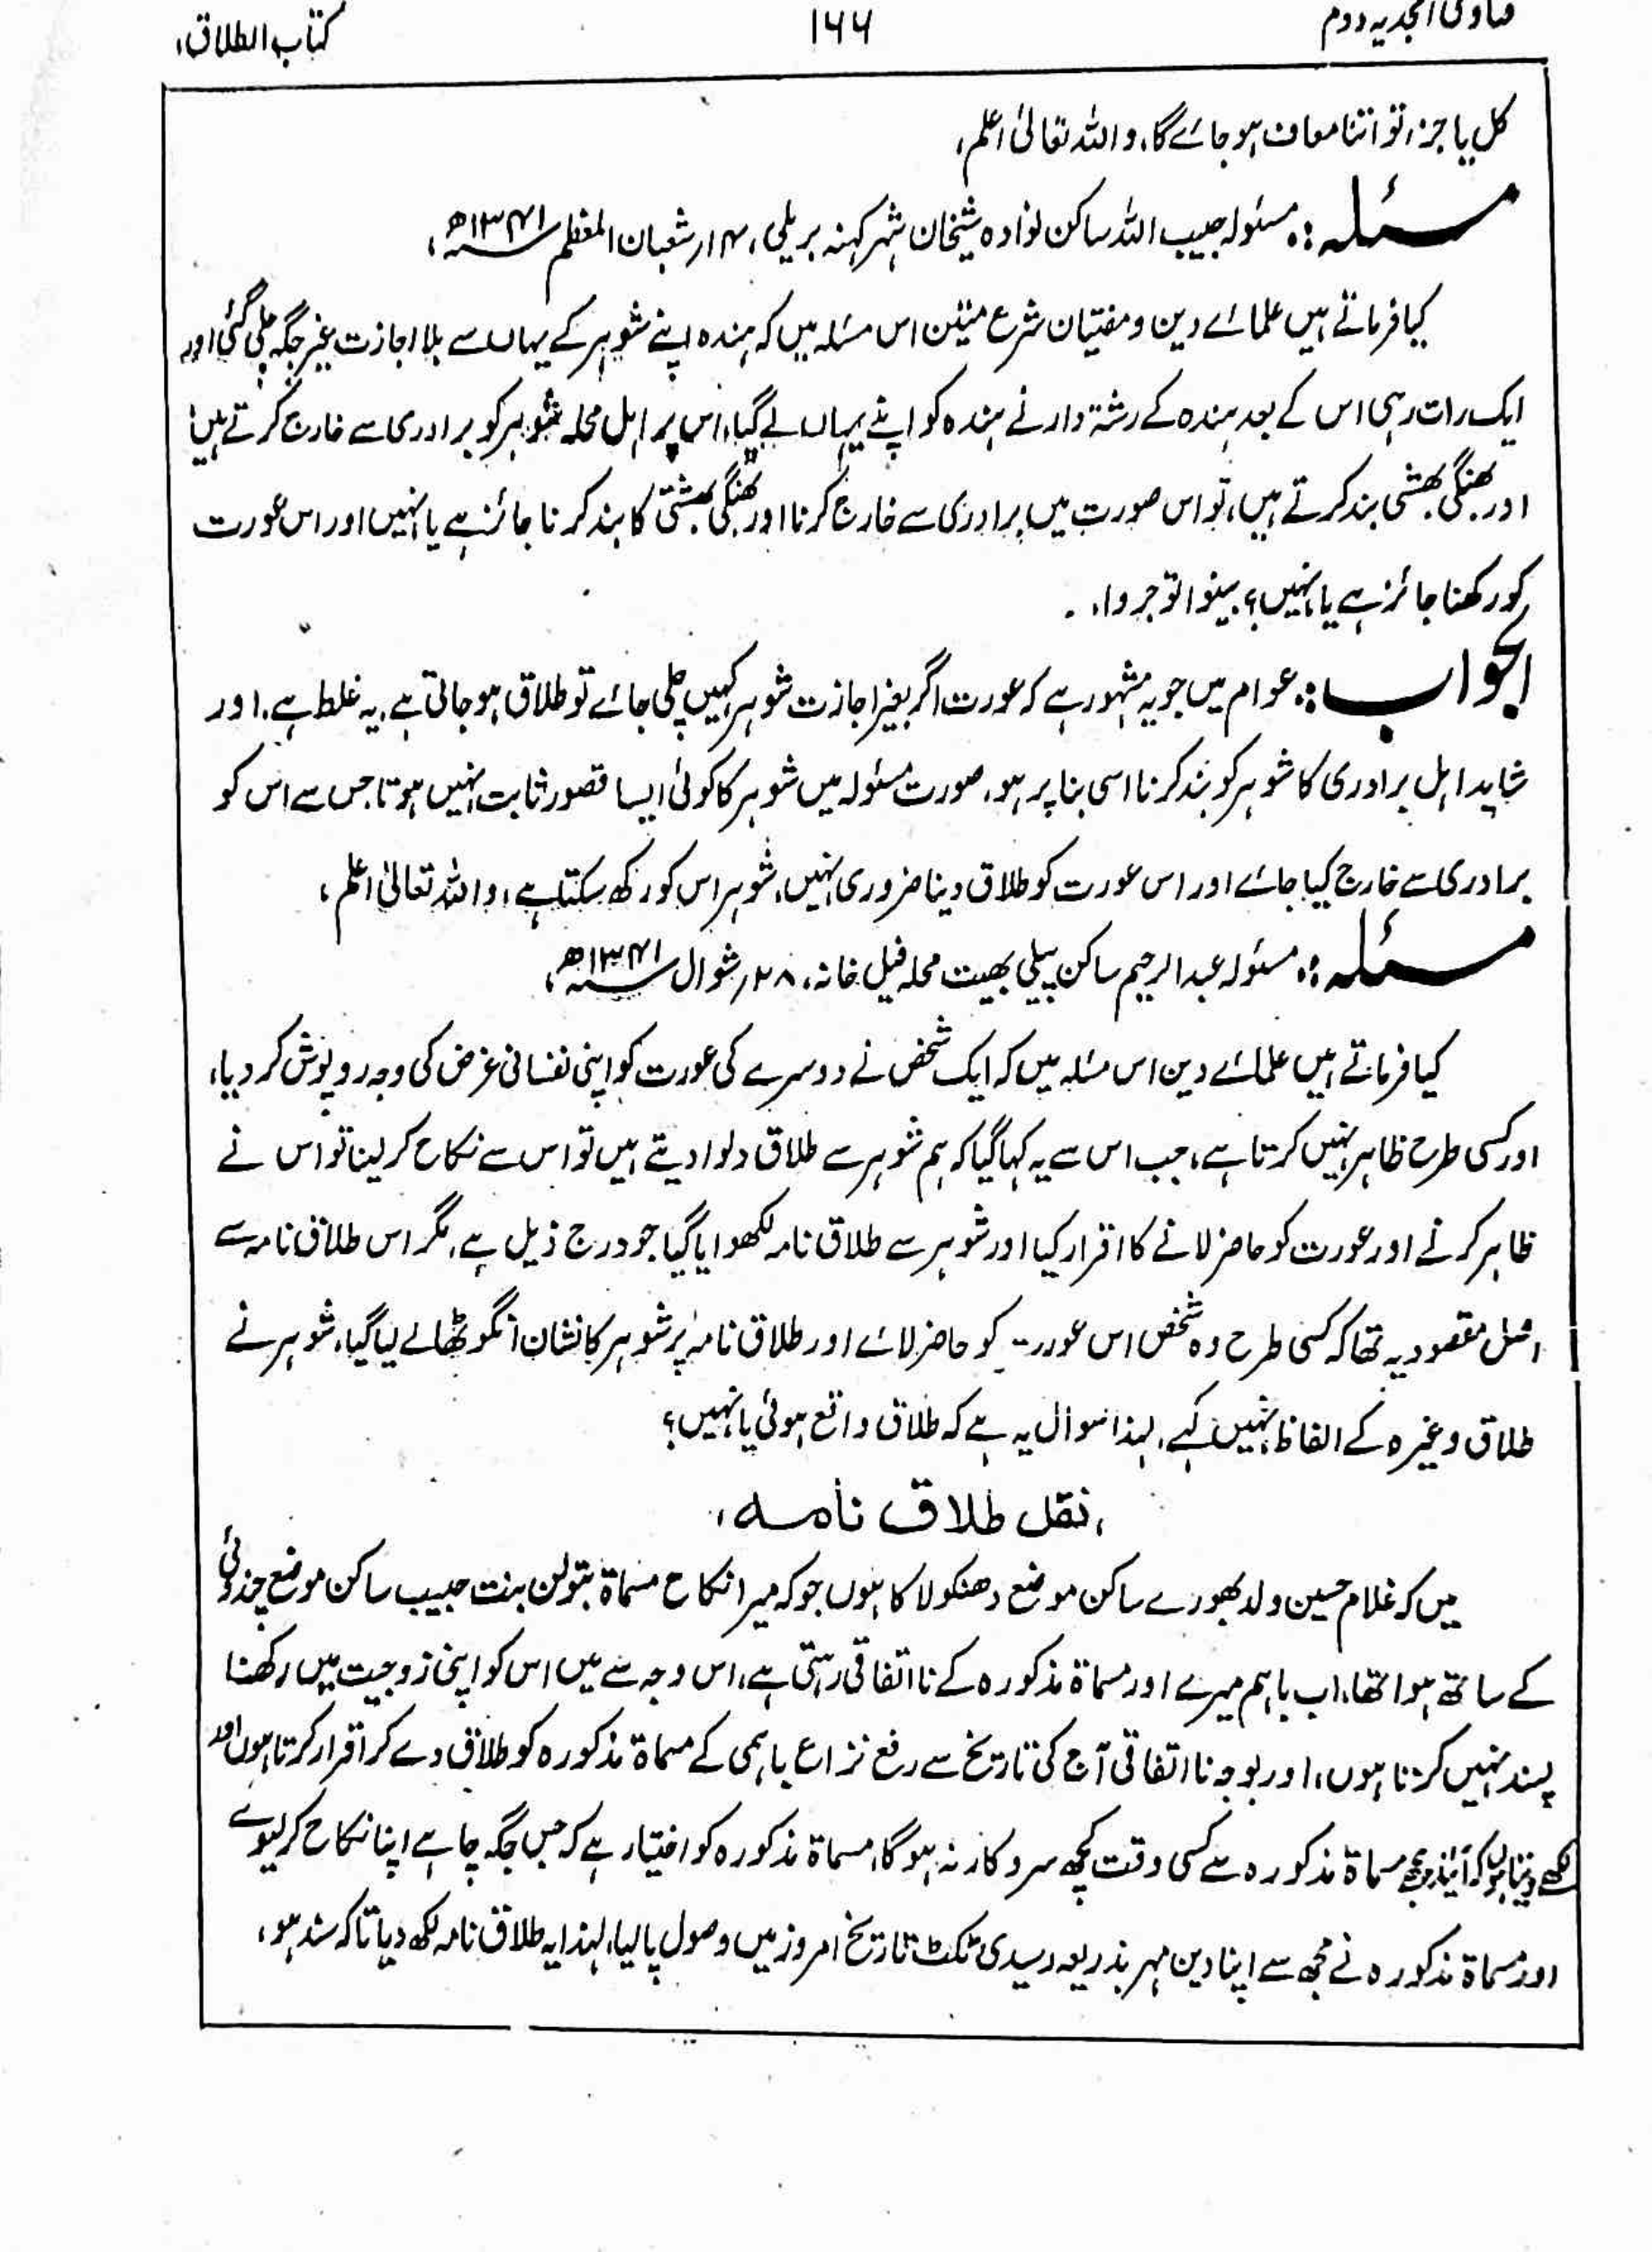 فتاوی امجدیہ دوم ۱۶۶ کتاب الطلاق،
کل یا جزء تو اتنا معاف ہو جائے گا، واللہ تعالیٰ اعلم،
مسئلہ:۔ مسئولہ حبیب اللہ ساکن نوادہ شیخان شہر کہنہ بریلی، ۱۴؍شعبان المعظم ۱۳۴۱ھ،
کیا فرماتے ہیں علمائے دین و مفتیان شرع متین اس مسئلہ میں کہ ہندہ اپنے شوہر کے یہاں سے بلا اجازت غیر جگہ چلی گئی اور
ایک رات رہی اس کے بعد ہندہ کے رشتہ دار نے ہندہ کو اپنے یہاں لے گیا، اس پر اہل محلہ شوہر کو برادری سے خارج کرتے ہیں
اور بھنگی بھشتی بند کرتے ہیں، تو اس صورت میں برادری سے خارج کرنا اور بھنگی بھشتی کا بند کرنا جائز ہے یا نہیں اور اس عورت
کو رکھنا جائز ہے یا نہیں؟ بینوا توجروا۔
الجواب:۔ عوام میں جو یہ مشہور ہے کہ عورت اگر بغیر اجازت شوہر کہیں چلی جائے تو طلاق ہو جاتی ہے۔ یہ غلط ہے۔ اور
شاید اہل برادری کا شوہر کو بند کرنا اسی بنا پر ہو۔ صورت مسئولہ میں شوہر کا کوئی ایسا قصور ثابت نہیں ہوتا جس سے اس کو
برادری سے خارج کیا جائے اور اس عورت کو طلاق دینا ضروری نہیں، شوہر اس کو رکھ سکتا ہے، واللہ تعالیٰ اعلم،
مسئلہ:۔ مسئولہ عبد الرحیم ساکن پیلی بھیت محلہ فیل خانہ، ۲۸؍شوال ۱۳۴۱ھ،
کیا فرماتے ہیں علمائے دین اس مسئلہ میں کہ ایک شخص نے دوسرے کی عورت کو اپنی نفسانی غرض کی وجہ روپوش کر دیا،
اور کسی طرح ظاہر نہیں کرتا ہے، جب اس سے یہ کہا گیا کہ ہم شوہر سے طلاق دلوا دیتے ہیں تو اس سے نکاح کر لینا تو اس نے
ظاہر کرنے اور عورت کو حاضر لانے کا اقرار کیا اور شوہر سے طلاق نامہ لکھوایا گیا جو درج ذیل ہے، مگر اس طلاق نامہ سے
اصل مقصود یہ تھا کہ کسی طرح وہ شخص اس عورت کو حاضر لائے اور طلاق نامہ پر شوہر کا نشان انگوٹھا لے لیا گیا، شوہر نے
طلاق وغیرہ کے الفاظ نہیں کہے، لہذا سوال یہ ہے کہ طلاق واقع ہوئی یا نہیں؟
، نقل طلاق نامہ،
میں کہ غلام حسین ولد بھورے ساکن موضع دھنکولا کا ہوں جو کہ میرا نکاح مسماۃ بتولن بنت حبیب ساکن موضع چندوئی
کے ساتھ ہوا تھا، اب باہم میرے اور مسماۃ مذکورہ کے نااتفاقی رہتی ہے، اس وجہ سے میں اس کو اپنی زوجیت میں رکھنا
پسند نہیں کرتا ہوں، اور بوجہ نااتفاقی آج کی تاریخ سے رفع نزاع باہمی کے مسماۃ مذکورہ کو طلاق دے کر اقرار کرتا ہوں اور
لکھے دیتا ہوں کہ آئندہ مجھے مسماۃ مذکورہ سے کسی وقت کچھ سروکار نہ ہوگا، مسماۃ مذکورہ کو اختیار ہے کہ جس جگہ چاہے اپنا نکاح کر لیوے
اور مسماۃ مذکورہ نے مجھ سے اپنا دین مہر بذریعہ رسیدی ٹکٹ تاریخ امروز میں وصول پا لیا، لہذا یہ طلاق نامہ لکھ دیا تاکہ سند ہو،